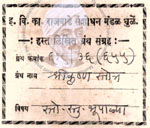 इ. वि. का. राजवाडे संशोधन मंडळ धुळे.
हस्त लिखित ग्रंथ संग्रह.
ग्रंथ क्रमांक ६५. ३६ (६५५)
ग्रंथ नाम श्रीकृष्ण स्तोत्र
विषय स्तो-स्तु-भूपाळ्या